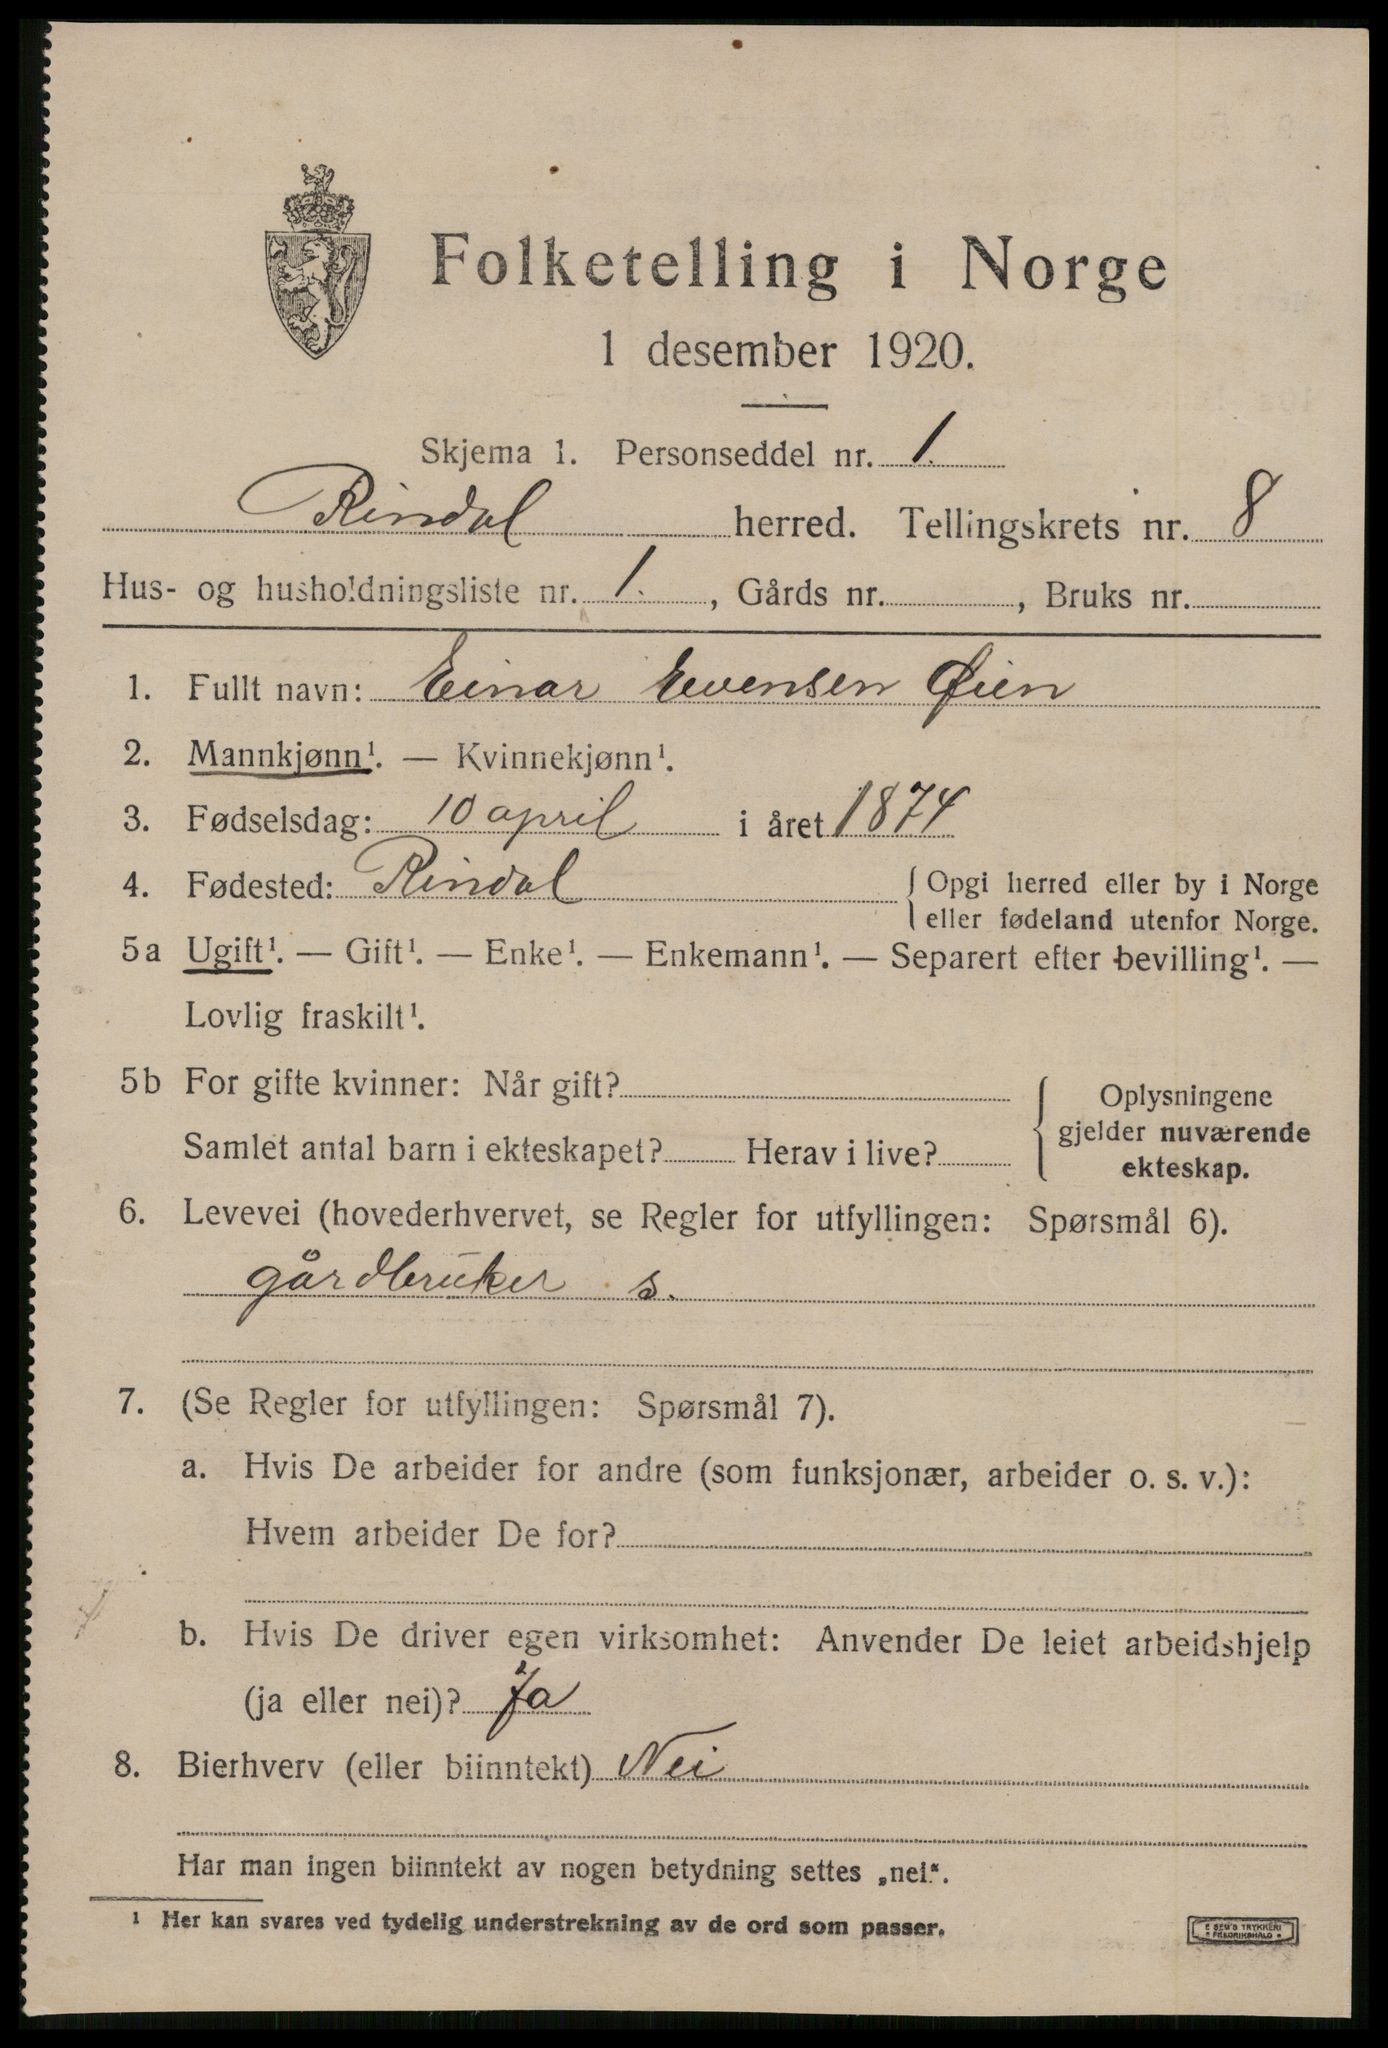 Folketelling i Norge
1 desember 1920.
Skjema 1. Personseddel nr. 1.
Rindal herred. Tellingskrets nr. 8
Hus- og husholdningsliste nr. 1. , Gårds nr. , Bruks nr.
1. Fullt navn: Einar Evensen Øien
2. Mannkjønn¹. — Kvinnekjønn¹.
3. Fødselsdag: 10 april i året 1874
4. Fødested: Rindal { Opgi herred eller by i Norge
eller fødeland utenfor Norge.
5a Ugift¹. — Gift¹. — Enke¹. — Enkemann¹. — Separert efter bevilling¹. —
Lovlig fraskilt¹.
5b For gifte kvinner: Når gift? { Oplysningene
gjelder nuværende
Samlet antal barn i ekteskapet? Herav i live? ekteskap.
6. Levevei (hovederhvervet, se Regler for utfyllingen: Spørsmål 6).
gårdbruker s.
7. (Se Regler for utfyllingen: Spørsmål 7).
a. Hvis De arbeider for andre (som funksjonær, arbeider o. s. v.):
Hvem arbeider De for?
b. Hvis De driver egen virksomhet: Anvender De leiet arbeidshjelp
(ja eller nei)? Ja
8. Bierhverv (eller biinntekt) Nei
Har man ingen biinntekt av nogen betydning settes „nei“.
¹ Her kan svares ved tydelig understrekning av de ord som passer.
E SEM'S TRYKKERI
FREDRIKSHALD